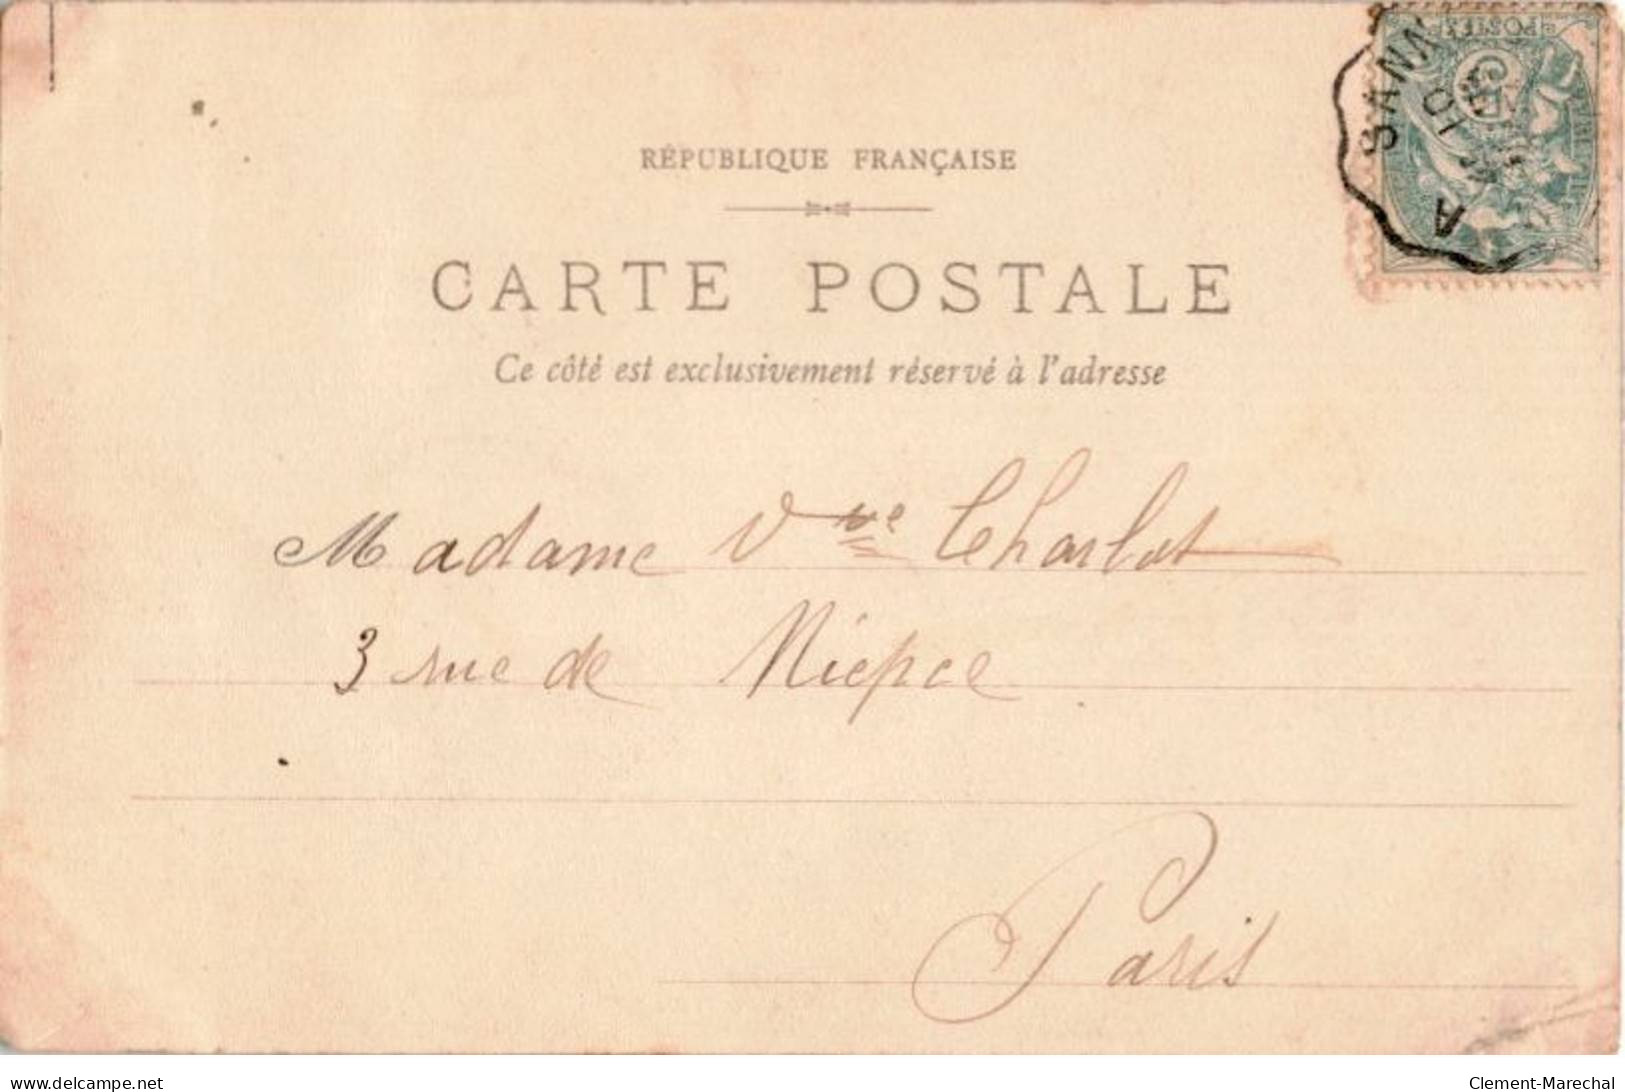 POSTES
RÉPUBLIQUE FRANÇAISE
CARTE POSTALE
Ce côté est exclusivement réservé à l'adresse
Madame Vve Charlot
3 rue de Niepce
Paris
www.delcampe.net
Clement-Marechal